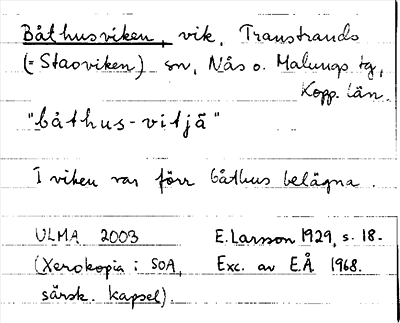 Båthusviken, vik, Transtrands
(= Staoviken) sn, Nås o. Malungs tg,
Kopp. län.
"båthus-vitjä"
I viken var förr båthus belägna.
ULMA 2003 E. Larsson 1929, s. 18-
(Xerokopia i SOA, Exc. av E.Å 1968.
särsk. kapsel).